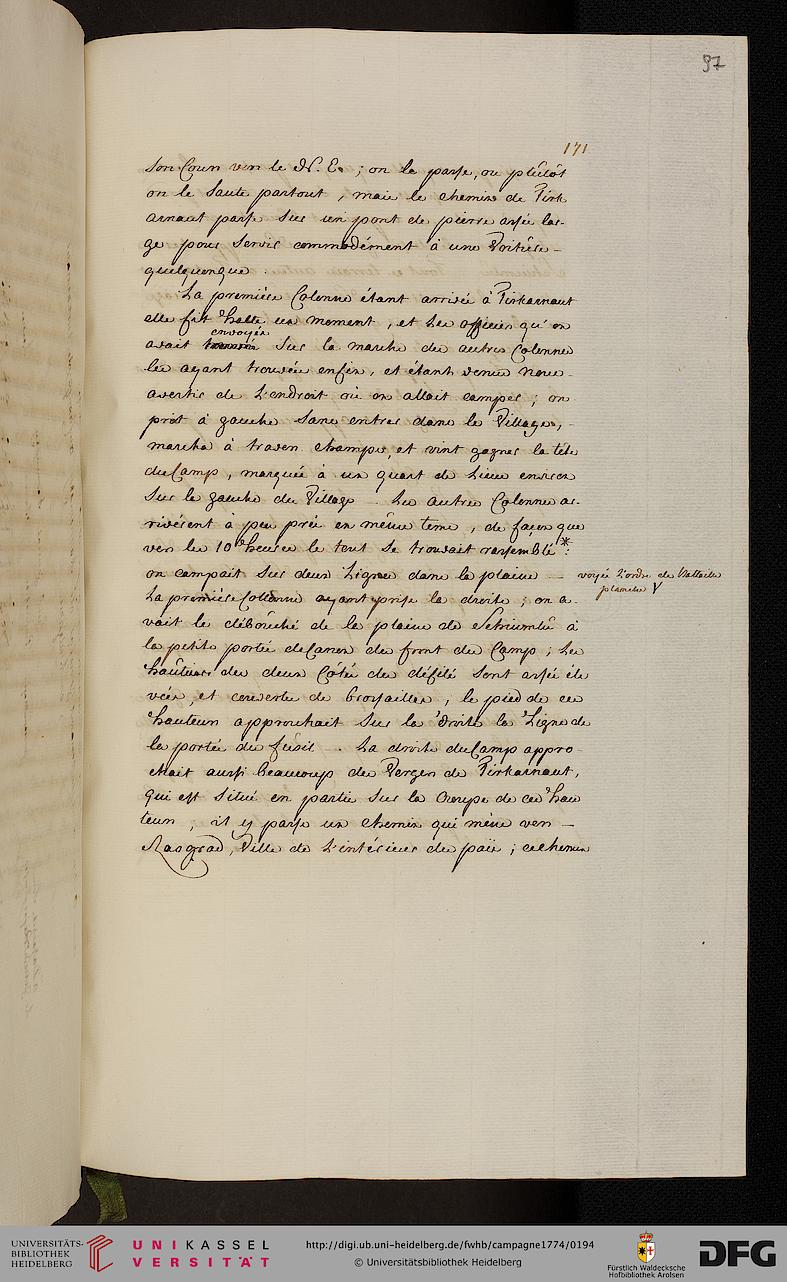 97
171
son Cours vers le N. E. ; on le passe, ou plûtôt
on le saute partout , mais le chemin de Tirk
arnaut passe sur un pont de pierre assés lar-
ge pour servir commodément à une Voiture -
quelquonque .
La premiére Colonne étant arrivée à Tirkarnaut
elle fit halte un moment , et les officiers qu'on
envoyés
avait sur la marche des autres Colonnes
les ayant trouvées enfin , et étant venus nous -
avertir de l'endroit où on allait camper ; on
prit à gauche sans entrer dans le Village , -
marcha à travers champs, et vint gagner la tête
du Camp , marquée à un quart de Lieue environ
sur la gauche du Village . Les autres Colonnes ar-
rivérent à peu prés en même tems , de façon que
vers les 10 heures le tout se trouvait rassemblé *:
on campait sur deux Lignes dans la plaine -
voyés l'ordre de Bataille
planche V
La premiére Collonne ayant prise la droite ; on a-
vait le débouché de la plaine de Schiumla à
la petite portée de Canon du front du Camp ; les
hauteurs des deux Côtés du défilé sont assés éle
vées , et couvertes de brossailles ; le pied de ces
hauteurs approuchait sur la droite la Ligne de
la portée du fusil . La droite du Camp appro-
chait aussi beaucoup des Vergers de Tirkarnaut ,
qui est situé en partie sur la Croupe de ces hau
teurs ; il y passe un chemin qui méne vers -
Rasgrad , Ville de l'intérieur du païs ; ce chemin
UNIVERSITÄTS-
BIBLIOTHEK
HEIDELBERG
UNIKASSEL
VERSITÄT
http://digi.ub.uni-heidelberg.de/fwhb/campagne1774/0194
© Universitätsbibliothek Heidelberg
Fürstlich Waldecksche
Hofbibliothek Arolsen
DFG